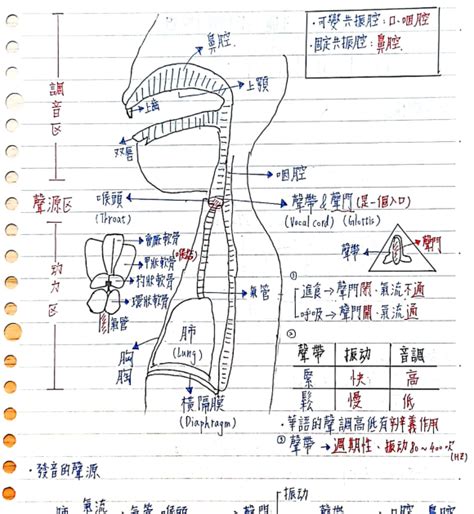 ·可變共振腔:口.咽腔
·固定共振腔:鼻腔
鼻腔
上顎
上齒
双唇
調音区
咽腔
聲源区
喉頭
(Throat)
聲帶&聲門(是一個入口)
(Vocal cord) (Glottis)
會厭軟骨
甲狀軟骨(喉結)
杓狀軟骨
環狀軟骨
氣管
动力区
氣管
聲帶
聲門
①
進食→聲門關.氣流不通
呼吸→聲門開.氣流通
肺
(Lung)
胸
橫隔膜
(Diaphragm)
②
聲帶 振动 音調
緊 快 高
鬆 慢 低
·華語的聲調高低有辨義作用
③聲帶→週期性.振动80~400次
(HZ)
·發音的聲源
振动
氣流
肺 氣管 喉頭 聲門 聲帶 口腔 鼻腔